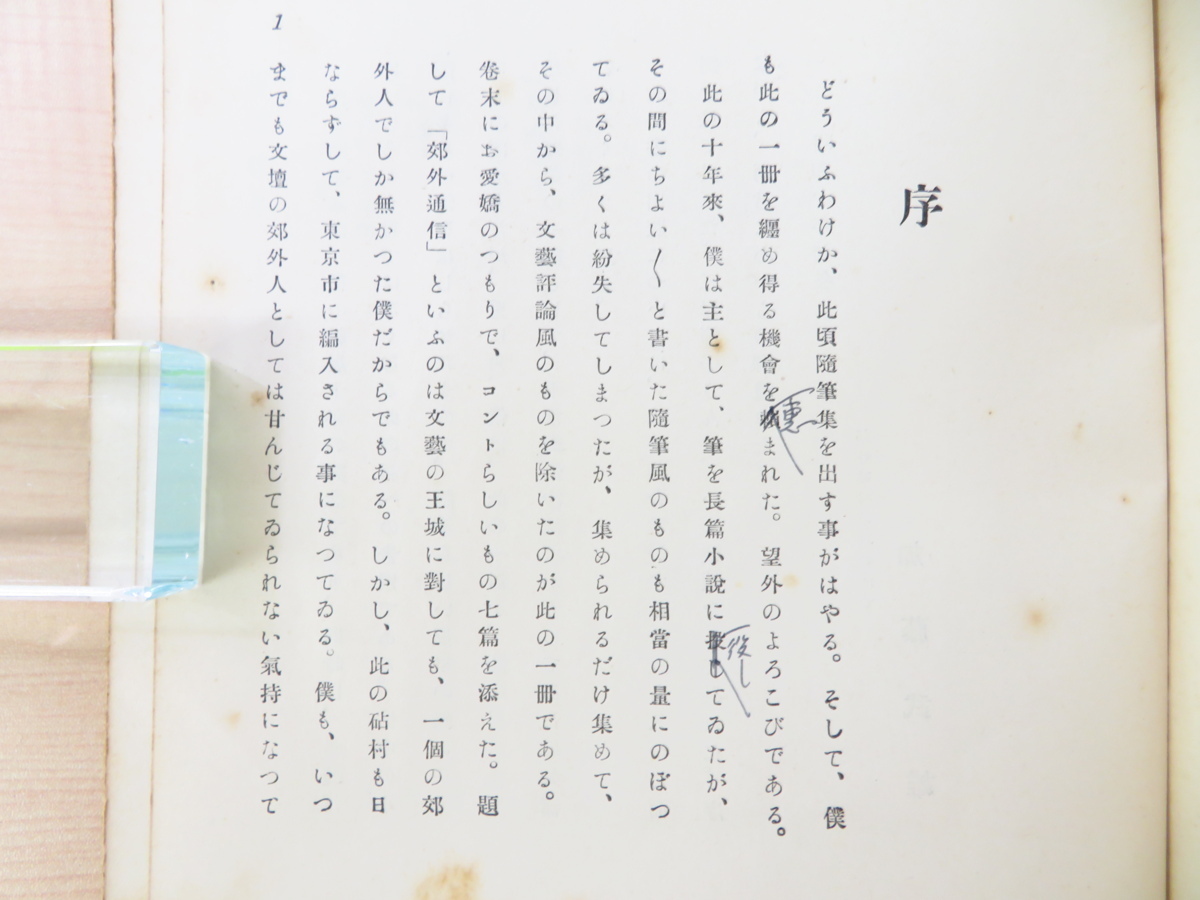 序
どういふわけか、此頃隨筆集を出す事がはやる。そして、僕
も此の一冊を纒め得る機會を惠まれた。望外のよろこびである。
此の十年來、僕は主として、筆を長篇小說に役してゐたが、
その間にちよい〳〵と書いた隨筆風のものも相當の量にのぼつ
てゐる。多くは紛失してしまつたが、集められるだけ集めて、
その中から、文藝評論風のものを除いたのが此の一冊である。
卷末にお愛嬌のつもりで、コントらしいもの七篇を添えた。題
して「郊外通信」といふのは文藝の王城に對しても、一個の郊
外人でしか無かつた僕だからでもある。しかし、此の砧村も日
ならずして、東京市に編入される事になつてゐる。僕も、いつ
までも文壇の郊外人としては甘んじてゐられない氣持になつて
1